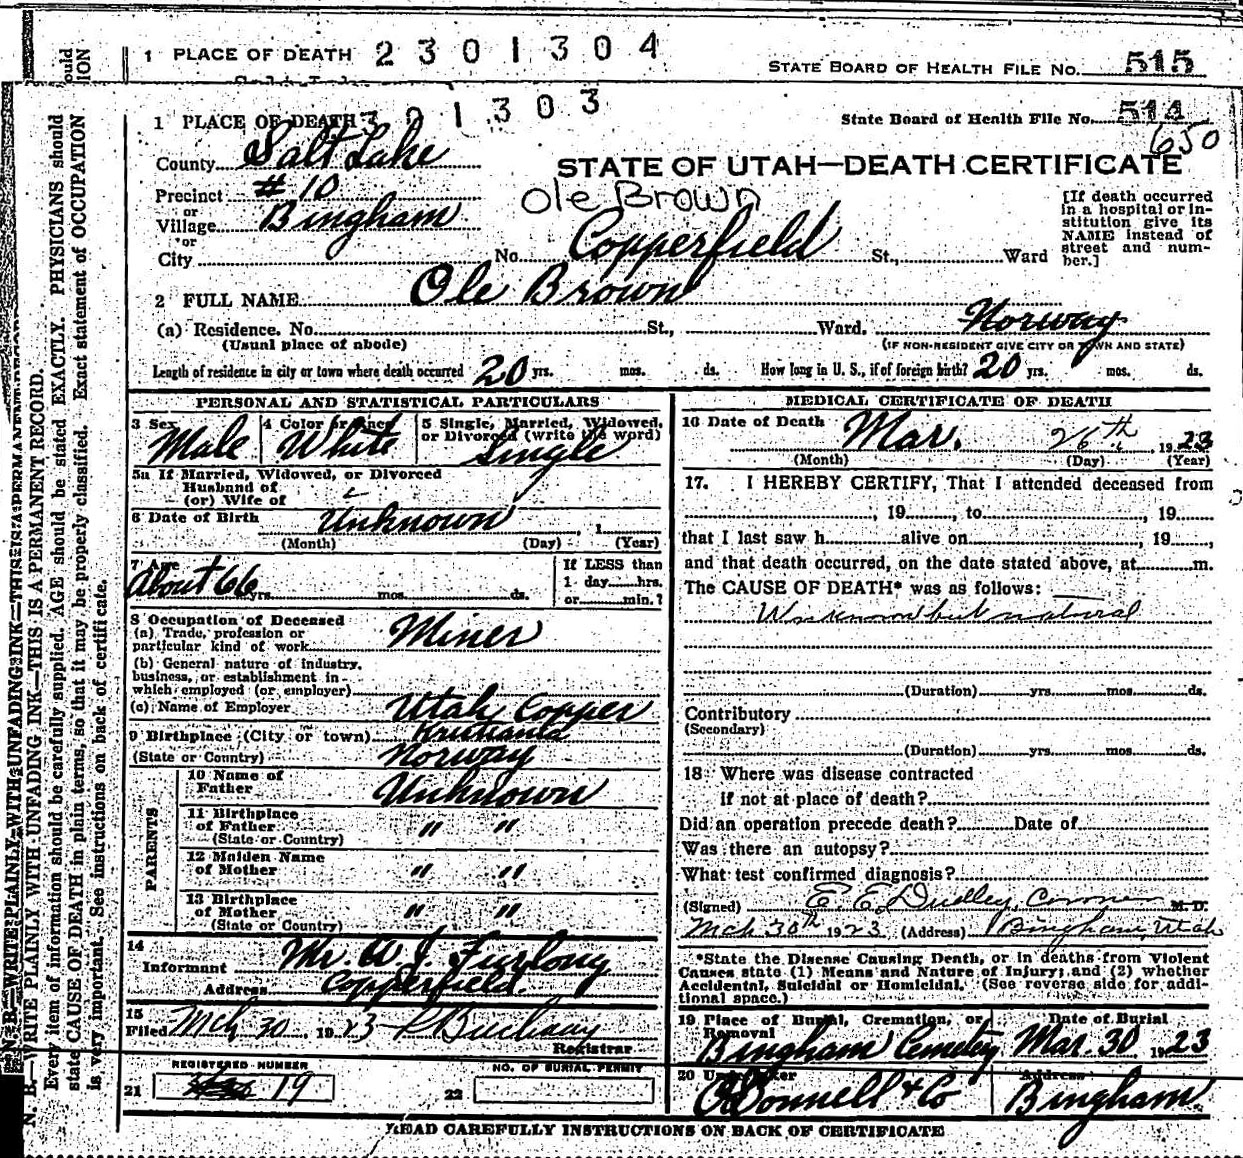 1 PLACE OF DEATH 2301304
STATE BOARD OF HEALTH FILE No. 515
1 PLACE OF DEATH 301303
State Board of Health File No. 514
650
County Salt Lake
STATE OF UTAH—DEATH CERTIFICATE
Precinct # 10
Ole Brown
or
Village Bingham
or
City No. Copperfield St., Ward
[If death occurred
in a hospital or in-
stitution give its
NAME instead of
street and num-
ber.]
2 FULL NAME Ole Brown
(a) Residence. No. St., Ward. Norway
(Usual place of abode) (IF NON-RESIDENT GIVE CITY OR TOWN AND STATE)
Length of residence in city or town where death occurred 20 yrs. mos. ds. How long in U. S., if of foreign birth? 20 yrs. mos. ds.
PERSONAL AND STATISTICAL PARTICULARS
3 Sex Male
4 Color or Race White
5 Single, Married, Widowed,
or Divorced (write the word)
Single
5a If Married, Widowed, or Divorced
Husband of
(or) Wife of
6 Date of Birth Unknown , 1
(Month) (Day) (Year)
7 Age
About 66 yrs. mos. ds.
If LESS than
1 day hrs.
or min.?
8 Occupation of Deceased
(a) Trade, profession or
particular kind of work Miner
(b) General nature of industry,
business, or establishment in
which employed (or employer)
(c) Name of Employer Utah Copper
9 Birthplace (City or town) Kristiania
(State or Country) Norway
PARENTS
10 Name of
Father Unknown
11 Birthplace
of Father " "
(State or Country)
12 Maiden Name
of Mother " "
13 Birthplace
of Mother " "
(State or Country)
14
Informant Mr. W. J. Furlong
Address Copperfield.
15
Filed Mch 30 1923
Registrar
REGISTERED NUMBER
21 19
NO. OF BURIAL PERMIT
22
MEDICAL CERTIFICATE OF DEATH
16 Date of Death Mar. 26th 1923
(Month) (Day) (Year)
17. I HEREBY CERTIFY, That I attended deceased from
, 19 , to , 19
that I last saw h alive on , 19 ,
and that death occurred, on the date stated above, at m.
The CAUSE OF DEATH* was as follows:
Unknown but natural
(Duration) yrs. mos. ds.
Contributory
(Secondary)
(Duration) yrs. mos. ds.
18 Where was disease contracted
if not at place of death?
Did an operation precede death? Date of
Was there an autopsy?
What test confirmed diagnosis?
(Signed) E. E. Dudley, Coroner M.D.
Mch 30th 1923 (Address) Bingham, Utah
*State the Disease Causing Death, or in deaths from Violent
Causes state (1) Means and Nature of Injury; and (2) whether
Accidental, Suicidal or Homicidal. (See reverse side for addi-
tional space.)
19 Place of Burial, Cremation, or
Removal
Bingham Cemetery
Date of Burial
Mar. 30 1923
20 Undertaker
O'Donnell & Co
Address
Bingham
READ CAREFULLY INSTRUCTIONS ON BACK OF CERTIFICATE
N. B.—WRITE PLAINLY WITH UNFADING INK—THIS IS A PERMANENT RECORD.
Every item of information should be carefully supplied. AGE should be stated EXACTLY. PHYSICIANS should
state CAUSE OF DEATH in plain terms, so that it may be properly classified. Exact statement of OCCUPATION
is very important. See instructions on back of certificate.